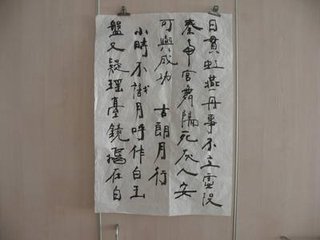 日貫虹燕丹事不立虛沒
秦帝宮舞陽死灰人安
可與成功 古朗月行
小時不識月呼作白玉
盤又疑瑤臺鏡 在白